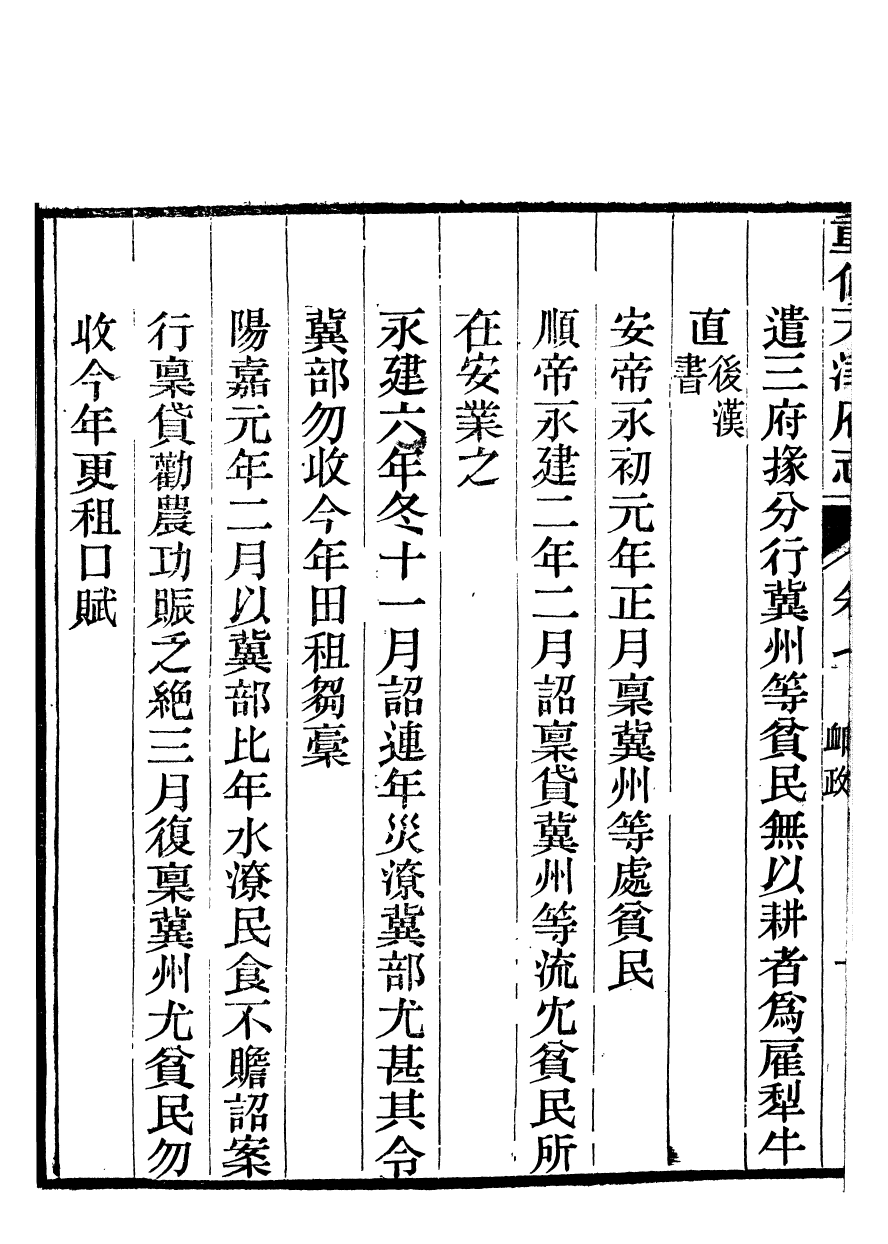 重修天津府志 卷 卹政
遣三府掾分行冀州等貧民無以耕者爲雇犁牛
直後漢書
安帝永初元年正月稟冀州等處貧民
順帝永建二年二月詔稟貸冀州等流冗貧民所
在安業之
永建六年冬十一月詔連年災潦冀部尤甚其令
冀部勿收今年田租芻稾
陽嘉元年二月以冀部比年水潦民食不贍詔案
行稟貸勸農功賑乏絶三月復稟冀州尤貧民勿
收今年更租口賦